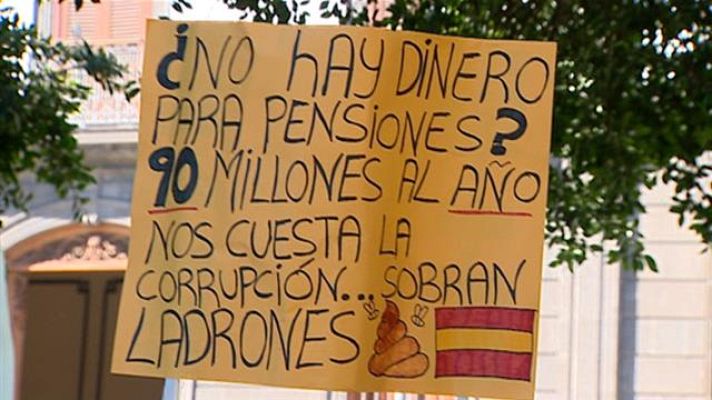 ¿NO HAY DINERO
PARA PENSIONES?
90 MILLONES AL AÑO
NOS CUESTA LA
CORRUPCIÓN... SOBRAN
LADRONES